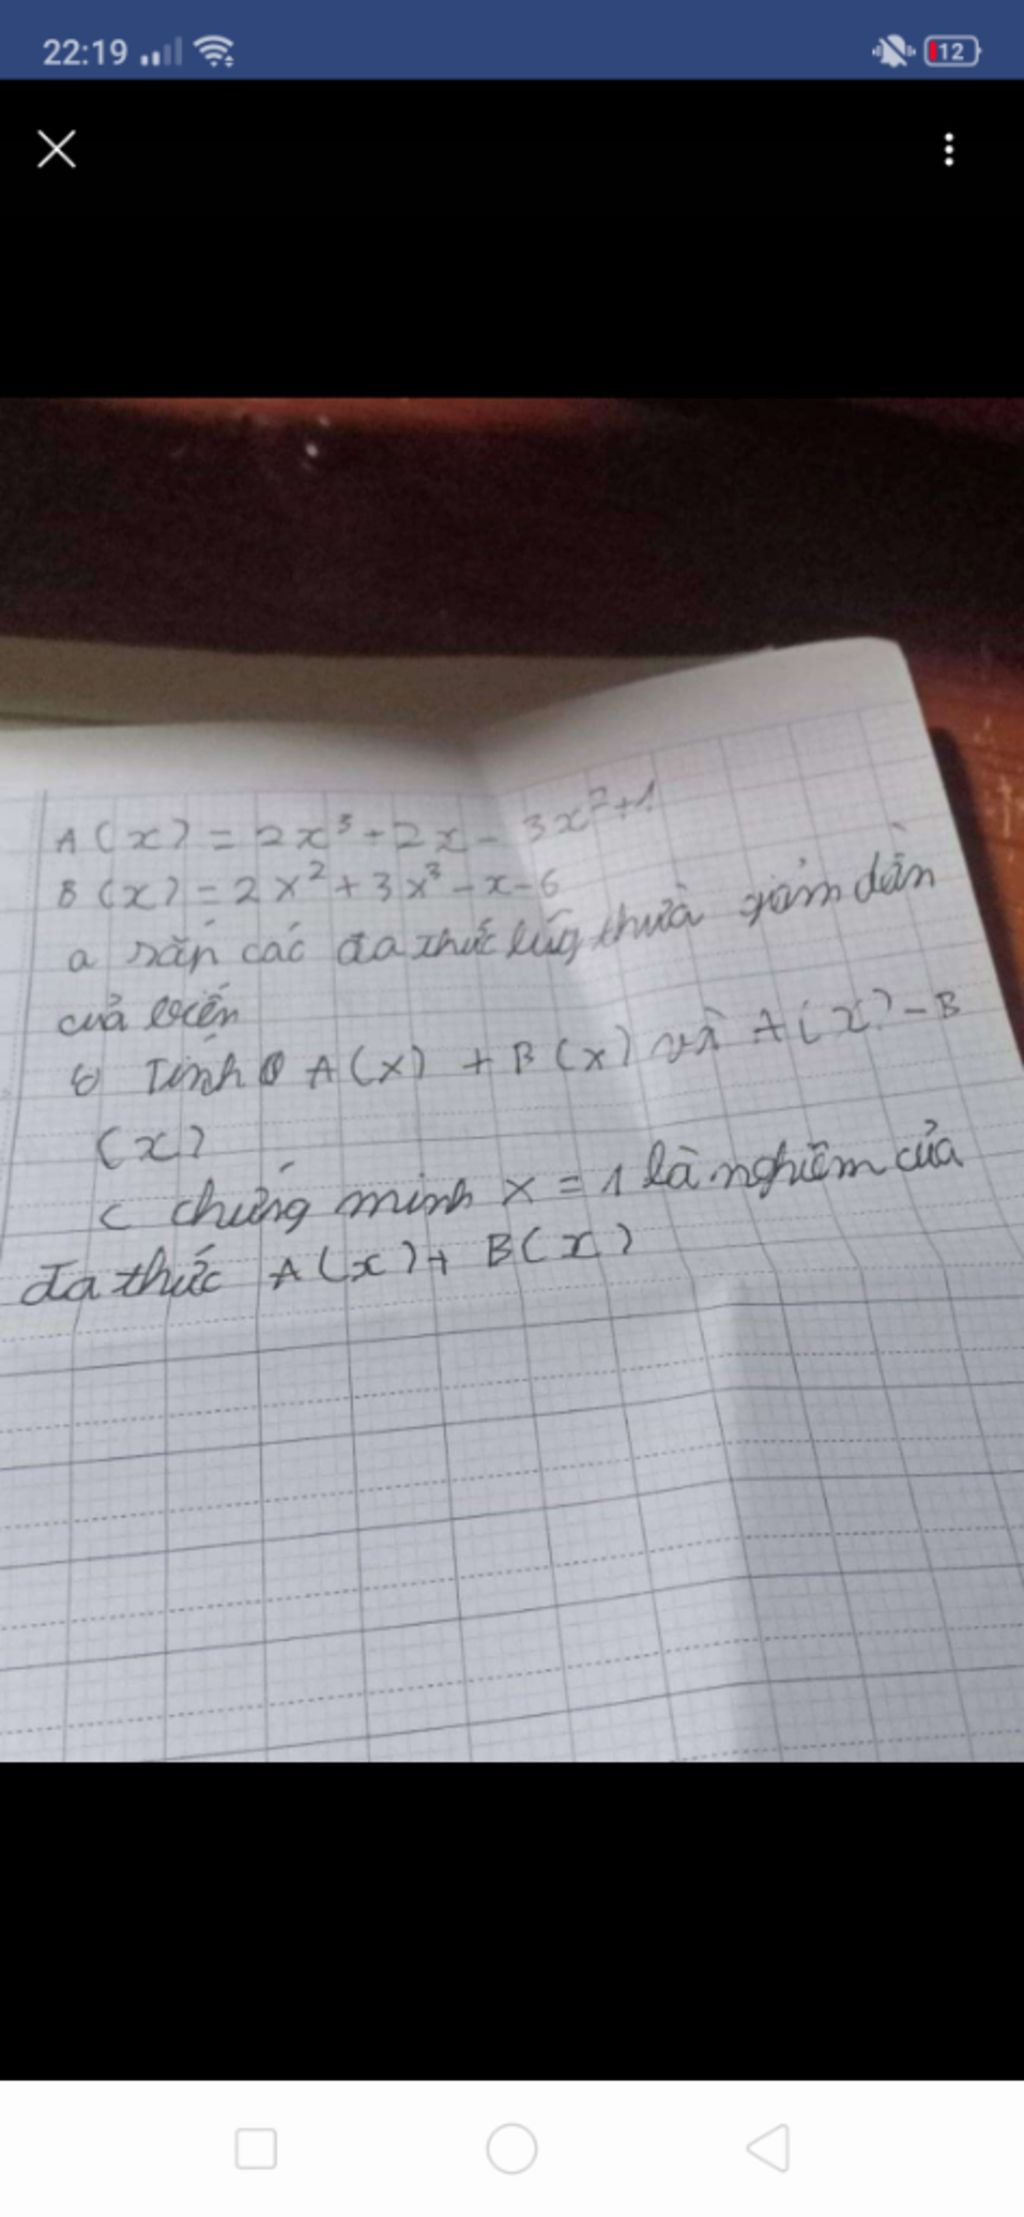 22:19
12
A(x) = 2x³ + 2x - 3x² + 1
B(x) = 2x² + 3x³ - x - 6
a sắp các đa thức lũy thừa giảm dần
của biến
b Tính A(x) + B(x) và A(x) - B
(x)
c chứng minh x = 1 là nghiệm của
đa thức A(x) + B(x)